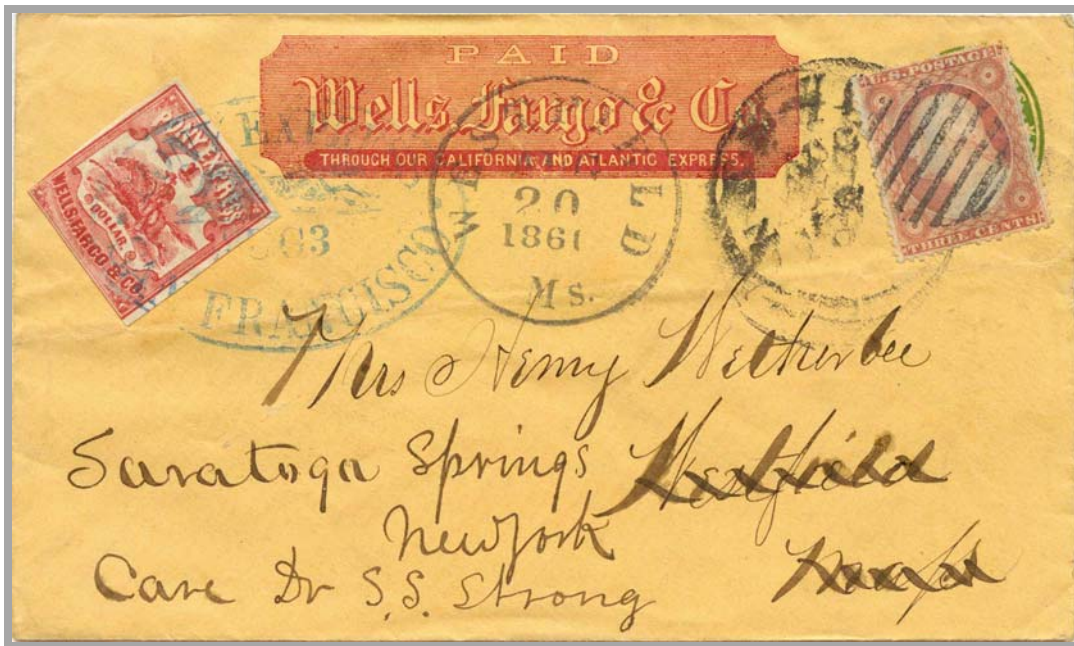 PAID
Wells Fargo & Co
THROUGH OUR CALIFORNIA AND ATLANTIC EXPRESS.
PONY EXPRESS
1
DOLLAR.
WELLS, FARGO & CO.
FRANCISCO
WESTFIELD
20
1861
Ms.
U.S. POSTAGE
THREE CENTS
Mrs Henry Wetherbee
Saratoga Springs Westfield
New York
Mass
Care Dr S.S. Strong